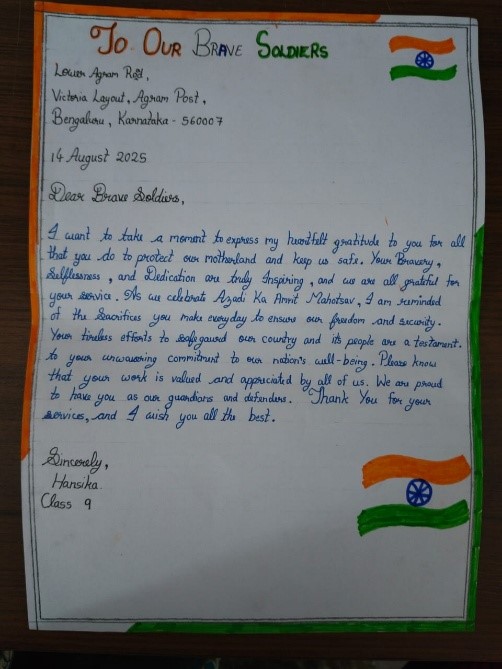 To Our Brave Soldiers
Lower Agram Rod,
Victoria Layout, Agram Post,
Bengaluru, Karnataka - 560007
14 August 2025
Dear Brave Soldiers,
I want to take a moment to express my heartfelt gratitude to you for all
that you do to protect our motherland and keep us safe. Your Bravery,
Selflessness, and Dedication are truly Inspiring, and we are all grateful for
your service. As we celebrate Azadi Ka Amrit Mahotsav, I am reminded
of the Sacrifices you make everyday to ensure our freedom and security.
Your tireless efforts to safegaurd our country and its people are a testament.
to your unwavering commitment to our nation's well-being. Please know
that your work is valued and appreciated by all of us. We are proud
to have you as our guardians and defenders. Thank You for your
services, and I wish you all the best.
Sincerely,
Hansika
Class 9